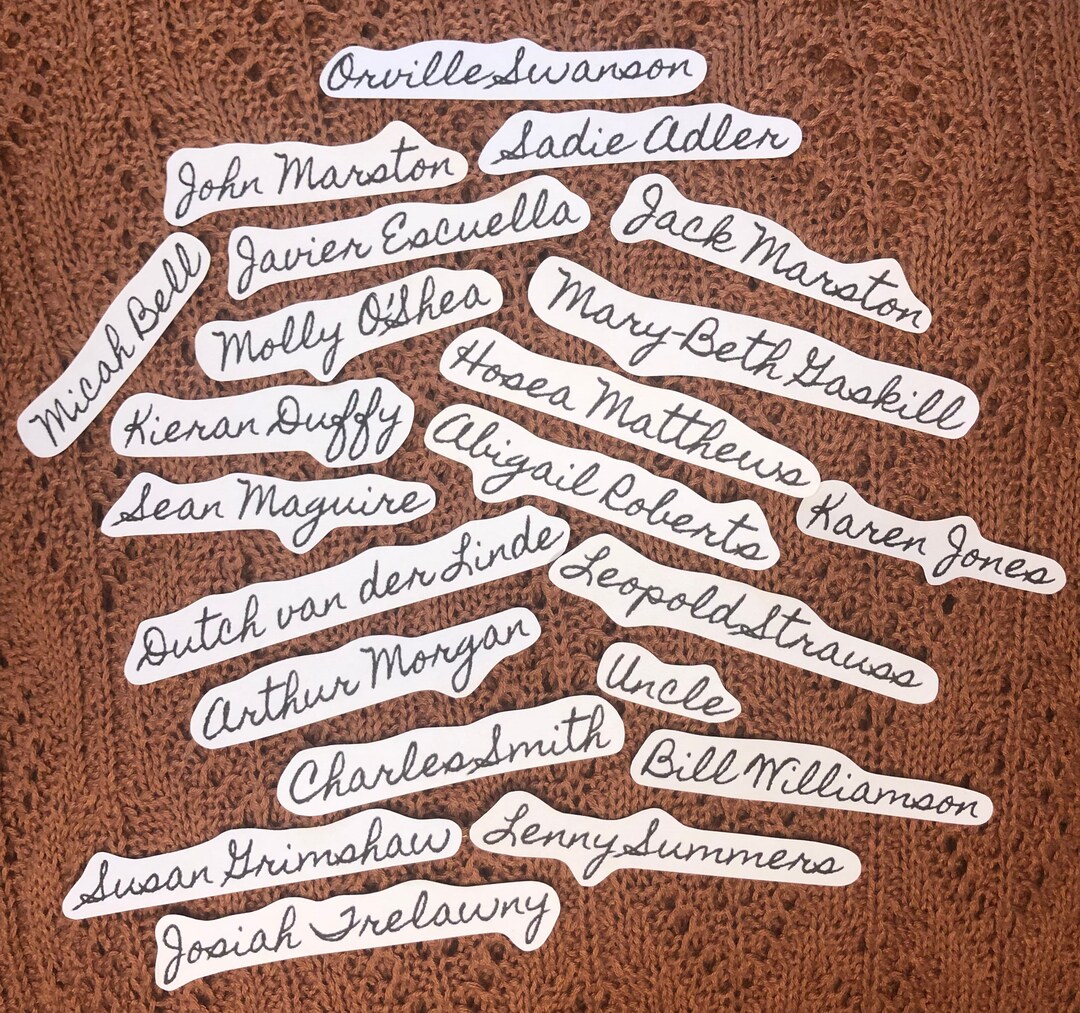 Orville Swanson
Sadie Adler
John Marston
Javier Escuella
Jack Marston
Micah Bell
Molly O'Shea
Mary-Beth Gaskill
Hosea Matthews
Kieran Duffy
Abigail Roberts
Sean Maguire
Karen Jones
Dutch van der Linde
Leopold Strauss
Arthur Morgan
Uncle
Charles Smith
Bill Williamson
Susan Grimshaw
Lenny Summers
Josiah Trelawny